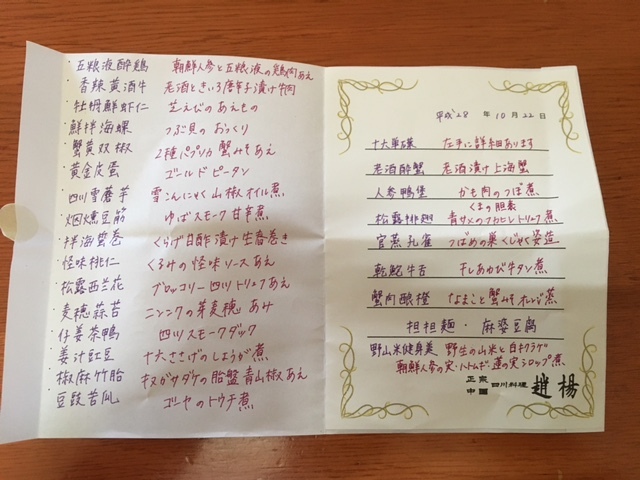 五粮液酔鶏 朝鮮人参と五粮液の鶏肉あえ
香辣黄酒牛 老酒ときいろ唐辛子漬け牛肉
牡丹鮮虾仁 芝えびのあえもの
鮮拌海螺 つぶ貝の
蟹黄双椒 2種パプリカ蟹みそあえ
黄金皮蛋 ゴールドピータン
四川雪蘑芋 雪こんにゃく山椒オイル煮
烟燻豆筋 ゆばスモーク甘辛煮
拌海蜇巻 くらげ日酢漬け生春巻き
怪味桃仁 くるみの怪味ソースあえ
松露西兰花 ブロッコリー四川トリュフあえ
麦穂蒜苔 ニンニクの芽麦穂あみ
仔姜茶鴨 四川スモークダック
姜汁豇豆 十六ささげのしょうが煮
椒麻竹胎 キヌガサダケの胎盤青山椒あえ
豆豉苦瓜 ゴーヤのトウチ煮
平成28年10月22日
十六単碟 左手に詳細あります
老酒酔蟹 老酒漬け上海蟹
人参鴨堡 かも肉のつぼ煮
松露排翅 青サメのフカヒレトリュフ煮
官燕孔雀 つばめの巣くじゃく姿造
乾鮑牛舌 干しあわび牛タン煮
蟹肉酸橙 なまこと蟹みそオレンジ蒸
担担麺・麻婆豆腐
野山米健身美 野生の山米と白キクラゲ
朝鮮人参の実・ハトムギ・蓮の実シロップ煮
正宗
中國 四川料理 趙楊